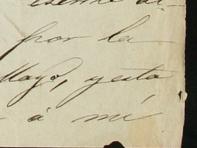 por la
Mayo, gesta
- à mi